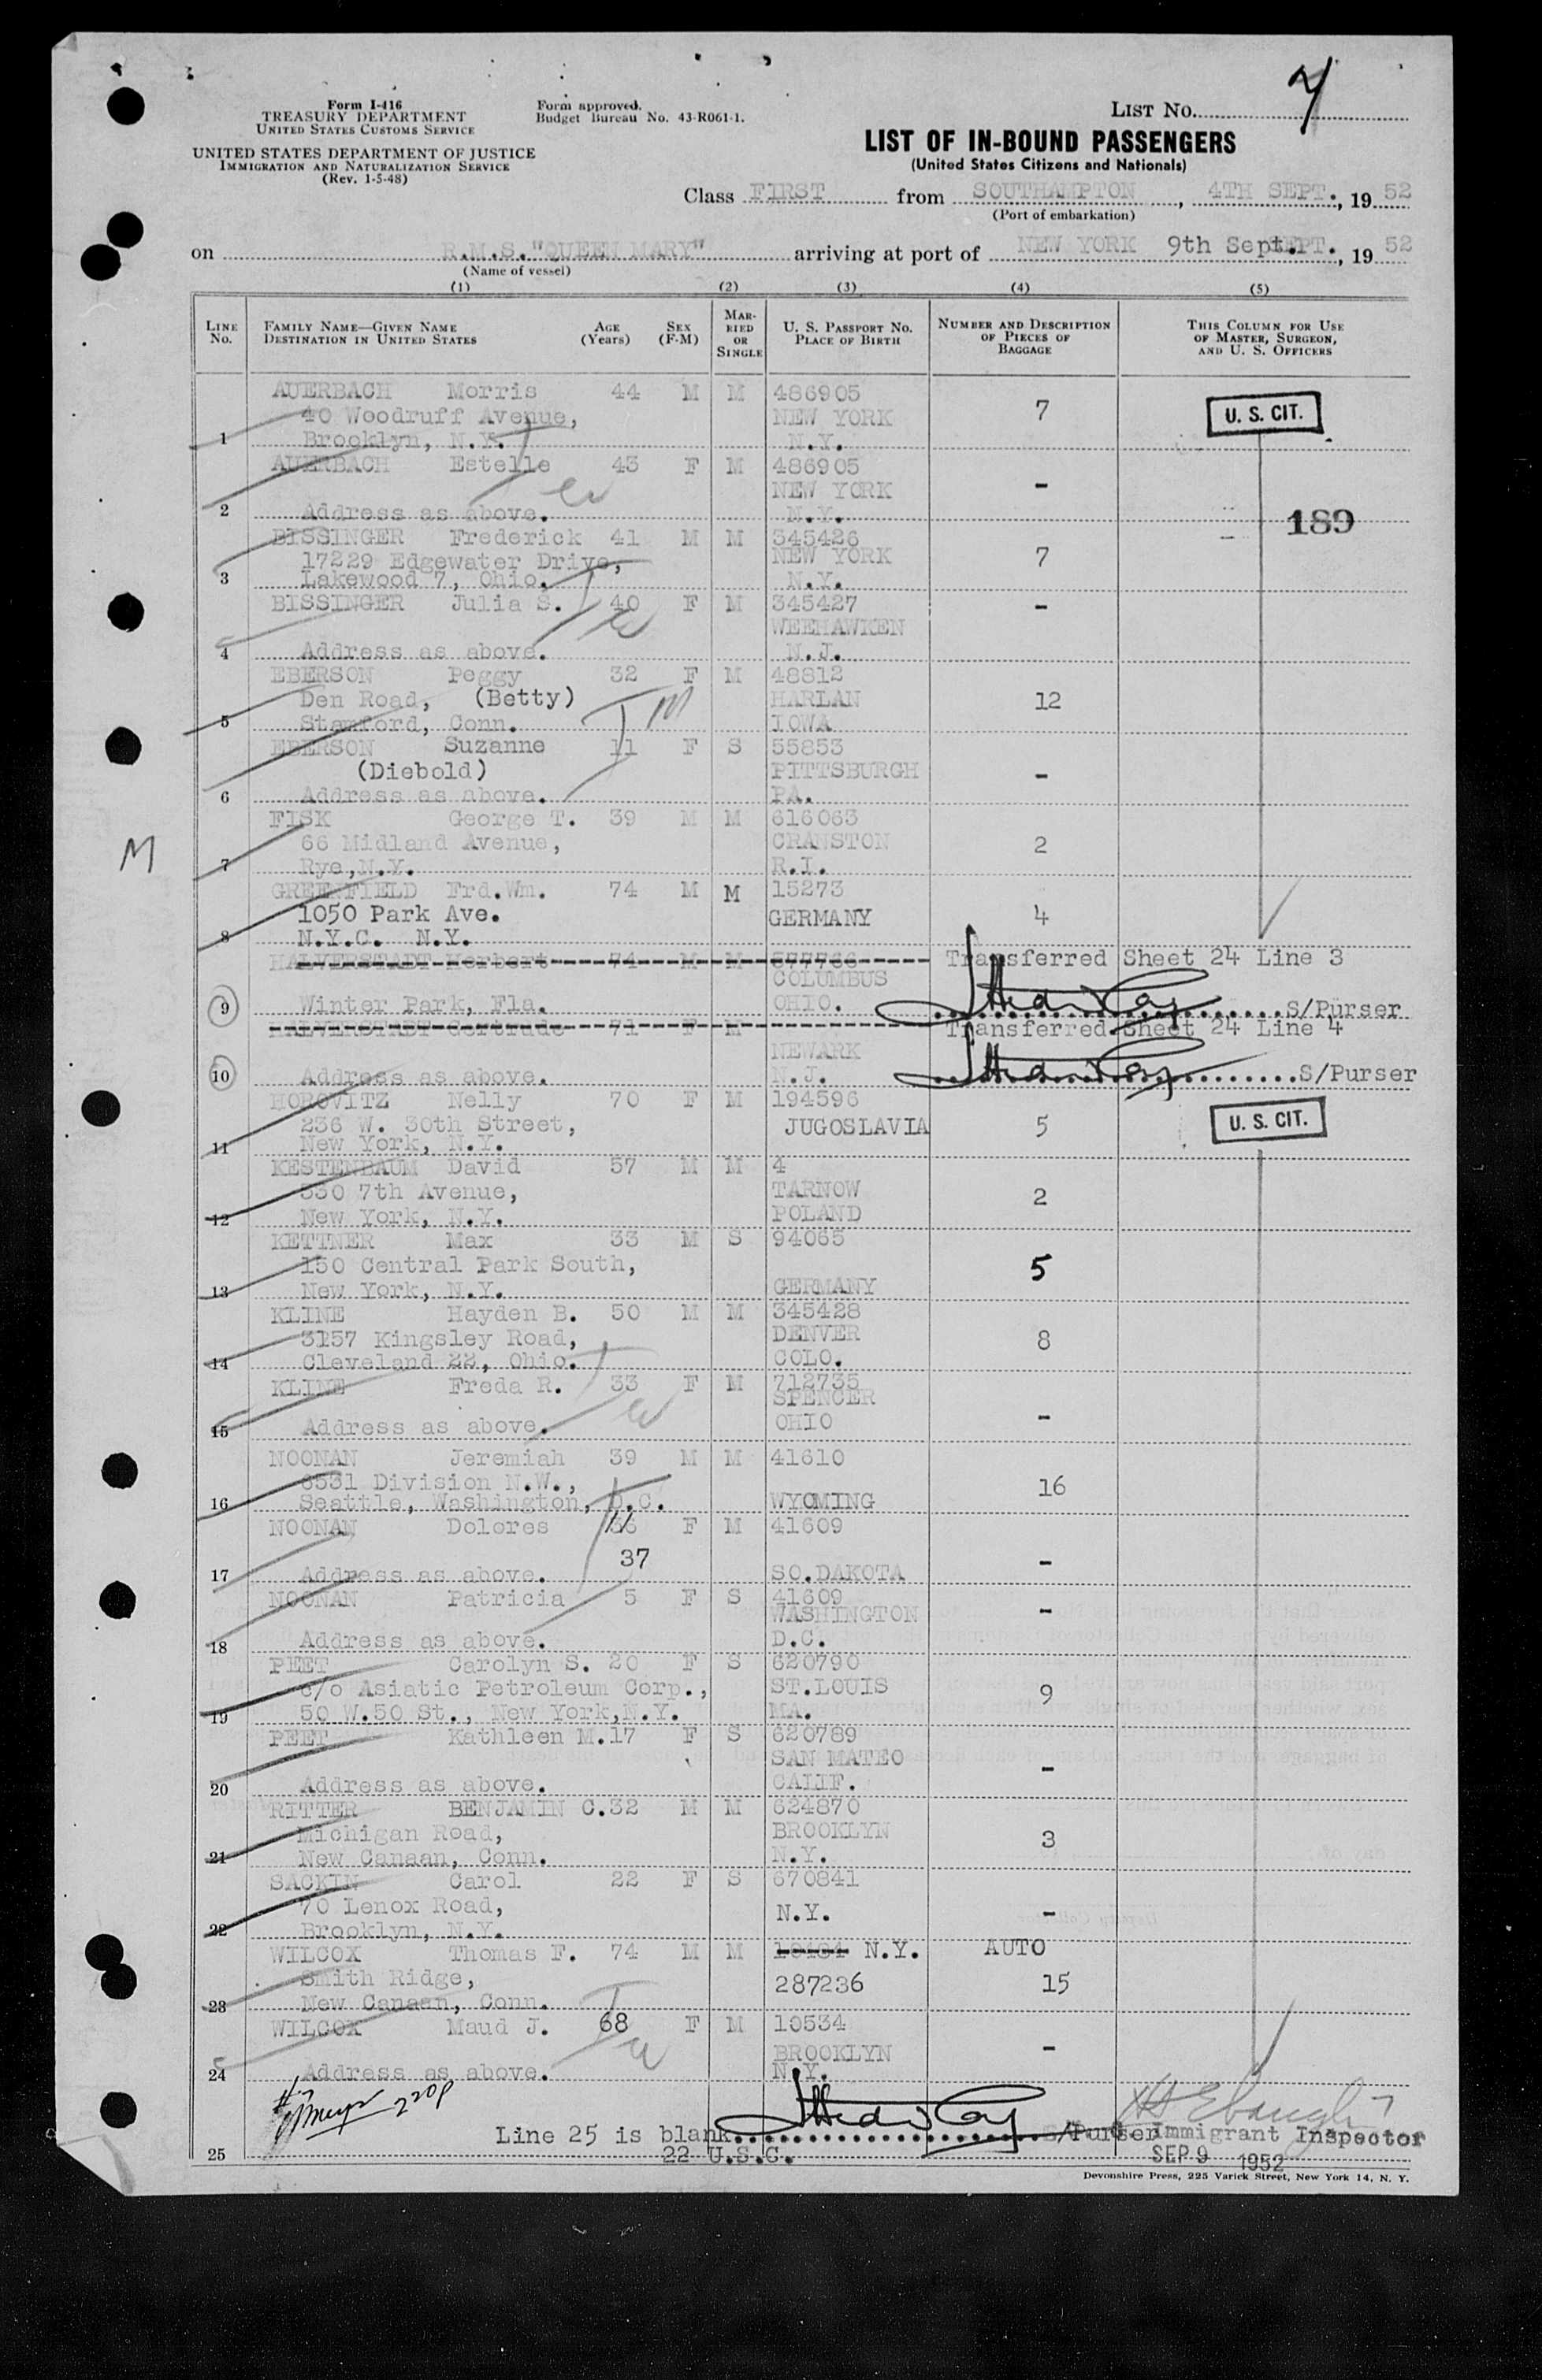 Form I-416
TREASURY DEPARTMENT
UNITED STATES CUSTOMS SERVICE
UNITED STATES DEPARTMENT OF JUSTICE
IMMIGRATION AND NATURALIZATION SERVICE
(Rev. 1-5-48)
Form approved.
Budget Bureau No. 43-R061-1.
LIST NO.
LIST OF IN-BOUND PASSENGERS
(United States Citizens and Nationals)
Class FIRST from SOUTHAMPTON, 4TH SEPT., 1952
(Port of embarkation)
on R.M.S."QUEEN MARY" arriving at port of NEW YORK 9th Sept., 1952
(Name of vessel)
(1) (2) (3) (4) (5)
LINE NO. FAMILY NAME—GIVEN NAME DESTINATION IN UNITED STATES AGE (Years) SEX (F-M) MARRIED OR SINGLE U. S. PASSPORT NO. PLACE OF BIRTH NUMBER AND DESCRIPTION OF PIECES OF BAGGAGE THIS COLUMN FOR USE OF MASTER, SURGEON, AND U. S. OFFICERS
AUERBACH Morris 44 M M 486905
40 Woodruff Avenue, NEW YORK 7 U. S. CIT.
1 Brooklyn, N.Y. N.Y.
AUERBACH Estelle 43 F M 486905
NEW YORK -
2 Address as above. N.Y.
189
BISSINGER Frederick 41 M M 345426
17229 Edgewater Drive, NEW YORK 7
3 Lakewood 7, Ohio. N.Y.
BISSINGER Julia S. 40 F M 345427 -
WEEHAWKEN
4 Address as above. N.J.
EBERSON Peggy 32 F M 48812
Den Road, (Betty) HARLAN 12
5 Stamford, Conn. IOWA
EBERSON Suzanne 11 F S 55853
(Diebold) PITTSBURGH -
6 Address as above. PA.
FISK George T. 39 M M 616063
66 Midland Avenue, CRANSTON 2
M
7 Rye, N.Y. R.I.
GREENFIELD Frd.Wm. 74 M M 15273
1050 Park Ave. GERMANY 4
8 N.Y.C. N.Y.
HALVERSTADT Herbert 74 M M 577766 Transferred Sheet 24 Line 3
COLUMBUS
9 Winter Park, Fla. OHIO. S/Purser
HALVERSTADT Gertrude 71 F M Transferred Sheet 24 Line 4
NEWARK
10 Address as above. N.J. S/Purser
HOROVITZ Nelly 70 F M 194596
236 W. 30th Street, JUGOSLAVIA 5 U. S. CIT.
11 New York, N.Y.
KESTENBAUM David 57 M M 4
330 7th Avenue, TARNOW 2
12 New York, N.Y. POLAND
KETTNER Max 33 M S 94065
150 Central Park South, 5
13 New York, N.Y. GERMANY
KLINE Hayden B. 50 M M 345428
3157 Kingsley Road, DENVER 8
14 Cleveland 22, Ohio. COLO.
KLINE Freda R. 33 F M 712735
SPENCER
15 Address as above. OHIO -
NOONAN Jeremiah 39 M M 41610
8531 Division N.W., 16
16 Seattle, Washington, D.C. WYOMING
NOONAN Dolores 36 F M 41609
37 -
17 Address as above. SO.DAKOTA
NOONAN Patricia 5 F S 41609
WASHINGTON -
18 Address as above. D.C.
PEET Carolyn S. 20 F S 620790
c/o Asiatic Petroleum Corp., ST.LOUIS 9
19 50 W.50 St., New York,N.Y. MA.
PEET Kathleen M. 17 F S 620789
SAN MATEO -
20 Address as above. CALIF.
RITTER BENJAMIN C. 32 M M 624870
Michigan Road, BROOKLYN 3
21 New Canaan, Conn. N.Y.
SACKIN Carol 22 F S 670841
70 Lenox Road, N.Y. -
22 Brooklyn, N.Y.
WILCOX Thomas F. 74 M M N.Y. AUTO
Smith Ridge, 287236 15
23 New Canaan, Conn.
WILCOX Maud J. 68 F M 10534
BROOKLYN -
24 Address as above. N.Y.
Line 25 is blank S/Purser Immigrant Inspector
25 22 U.S.C. SEP 9 1952
Devonshire Press, 225 Varick Street, New York 14, N. Y.